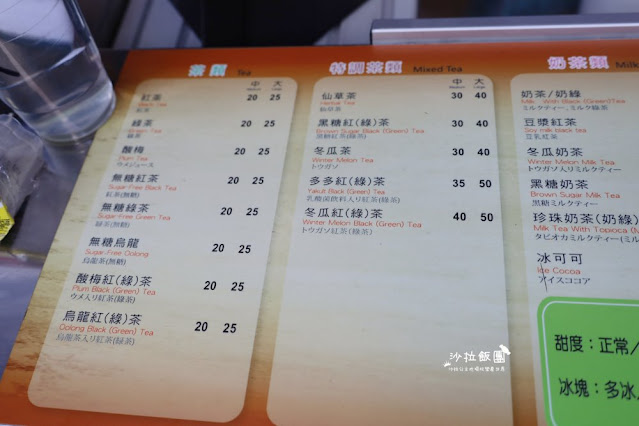 茶類 Tea
中 大
紅茶 20 25
Black Tea
紅茶
綠茶 20 25
Green Tea
綠茶
酸梅 20 25
Plum Tea
ウメジュース
無糖紅茶 20 25
Sugar-Free Black Tea
紅茶(無糖)
無糖綠茶 20 25
Sugar-Free Green Tea
綠茶(無糖)
無糖烏龍 20 25
Sugar-Free Oolong
烏龍茶(無糖)
酸梅紅(綠)茶 20 25
Plum Black (Green) Tea
ウメ入り紅茶(綠茶)
烏龍紅(綠)茶 20 25
Oolong Black (Green) Tea
烏龍茶入り紅茶(綠茶)
特調茶類 Mixed Tea
中 大
仙草茶 30 40
Herbal Tea
仙草茶
黑糖紅(綠)茶 30 40
Brown Sugar Black (Green) Tea
黒糖紅茶(綠茶)
冬瓜茶 30 40
Winter Melon Tea
トウガン
多多紅(綠)茶 35 50
Yakult Black (Green) Tea
乳酸菌飲料入り紅茶(綠茶)
冬瓜紅(綠)茶 40 50
Winter Melon Black (Green) Tea
トウガン紅茶(綠茶)
奶茶類 Milk
奶茶/奶綠
Milk With Black (Green)Tea
ミルクティー、ミルク綠茶
豆漿紅茶
Soy milk black tea
豆乳紅茶
冬瓜奶茶
Winter Melon Milk Tea
トウガン入りミルクティー
黑糖奶茶
Brown Sugar Milk Tea
黒糖ミルクティー
珍珠奶茶(奶綠)
Milk Tea With Tapioca (M
タピオカミルクティー(ミル
冰可可
Ice Cocoa
アイスココア
甜度：正常/
冰塊：多冰
沙拉飯團